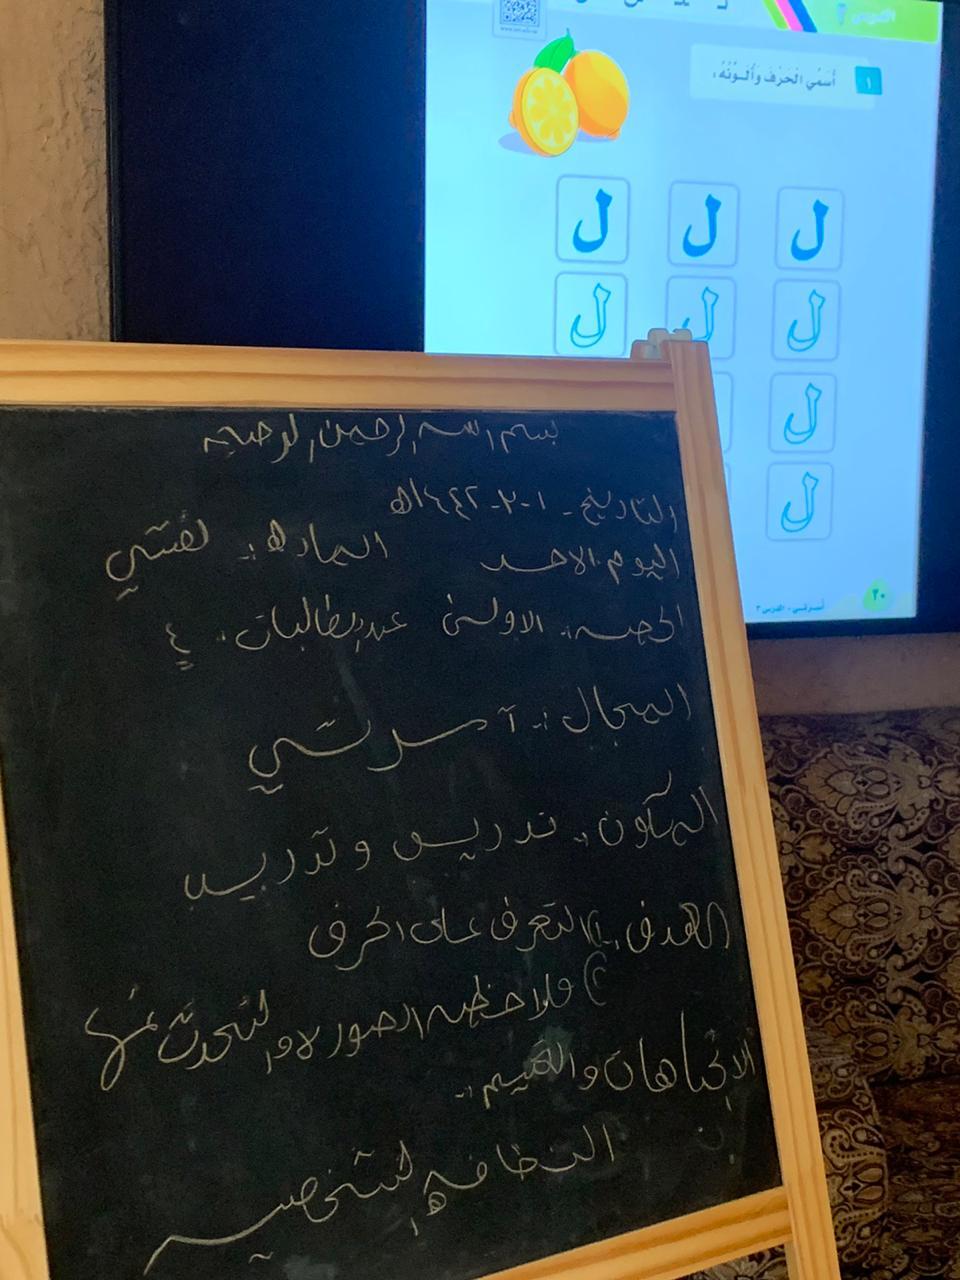 الدرس ٢
١ أُسَمِّي الْحَرْفَ وَأُلَوِّنُهُ:
ل ل ل
ل ل ل
ل
ل
أسرتي - الدرس ٢
٢٠
بسم الله الرحمن الرحيم
التاريخ - ١-٢-١٤٤٢ه
اليوم: الاحد المادة: لغتي
الحصة: الاولى عدد الطالبات: ٤
المجال: أسرتي
المكون: تدريس وتدريب
الهدف: ١) التعرف على الحرف
٢) ملاحظة الصور والتحدث عنها
الاتجاهات والقيم:
النظافة الشخصية